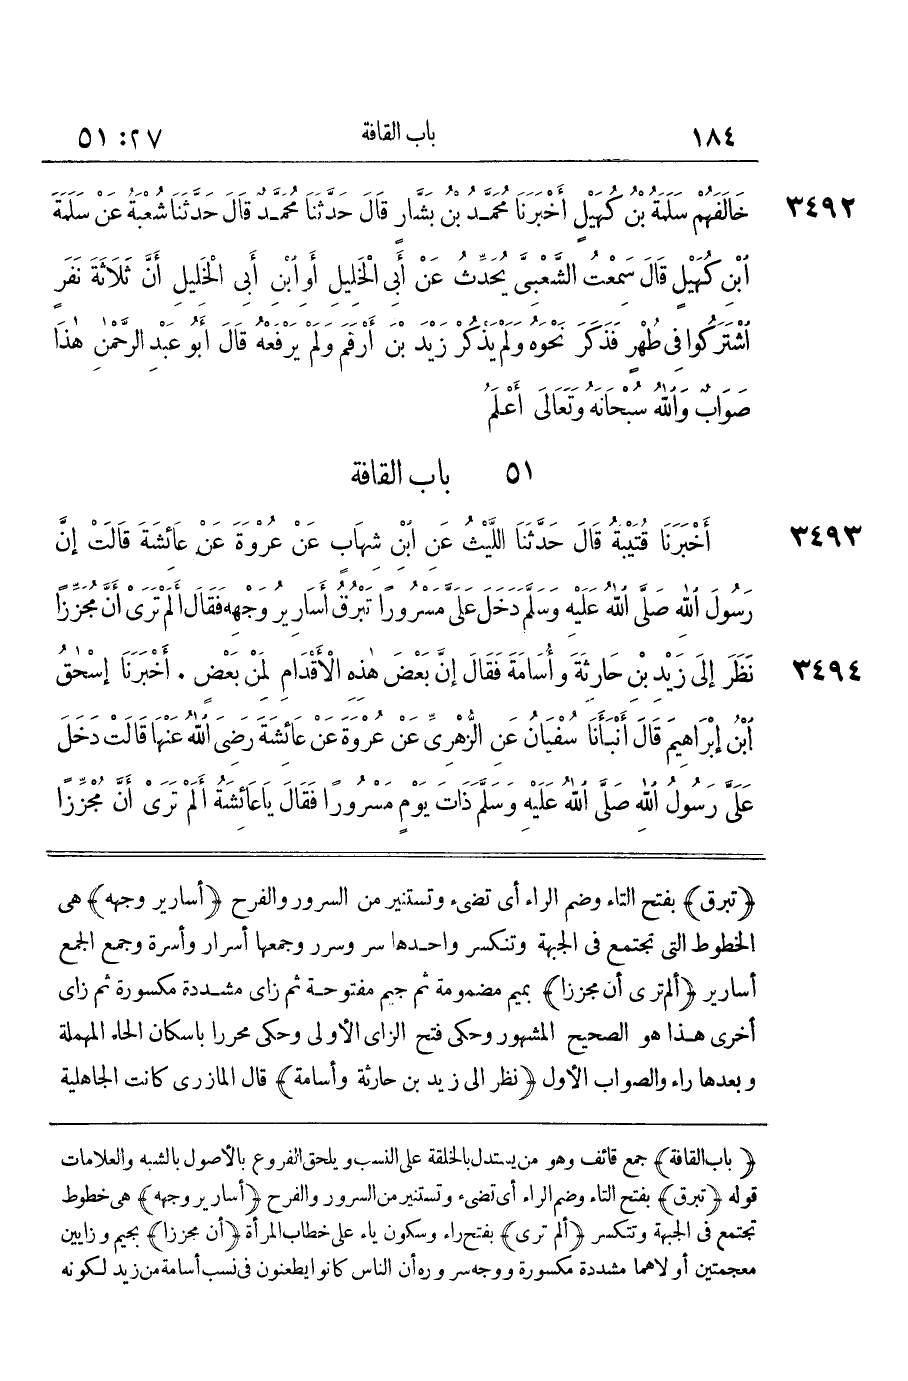 ١٨٤ باب القافة ٢٧: ٥١
٣٤٩٢ خَالَفَهُمْ سَلَمَةُ بْنُ كُهَيْلٍ أَخْبَرَنَا مُحَمَّدُ بْنُ بَشَّارٍ قَالَ حَدَّثَنَا مُحَمَّدٌ قَالَ حَدَّثَنَا شُعْبَةُ عَنْ سَلَمَةَ
ٱبْنِ كُهَيْلٍ قَالَ سَمِعْتُ الشَّعْبِىَّ يُحَدِّثُ عَنْ أَبِى الْخَلِيلِ أَوِ ٱبْنِ أَبِى الْخَلِيلِ أَنَّ ثَلَاثَةَ نَفَرٍ
ٱشْتَرَكُوا فِى طُهْرٍ فَذَكَرَ نَحْوَهُ وَلَمْ يَذْكُرْ زَيْدَ بْنَ أَرْقَمَ وَلَمْ يَرْفَعْهُ قَالَ أَبُو عَبْدِ الرَّحْمٰنِ هٰذَا
صَوَابٌ وَٱللّٰهُ سُبْحَانَهُ وَتَعَالَى أَعْلَمُ
٥١ باب القافة
٣٤٩٣ أَخْبَرَنَا قُتَيْبَةُ قَالَ حَدَّثَنَا اللَّيْثُ عَنِ ٱبْنِ شِهَابٍ عَنْ عُرْوَةَ عَنْ عَائِشَةَ قَالَتْ إِنَّ
رَسُولَ ٱللّٰهِ صَلَّى ٱللّٰهُ عَلَيْهِ وَسَلَّمَ دَخَلَ عَلَىَّ مَسْرُورًا تَبْرُقُ أَسَارِيرُ وَجْهِهِ فَقَالَ أَلَمْ تَرَىْ أَنَّ مُجَزِّزًا
٣٤٩٤ نَظَرَ إِلَى زَيْدِ بْنِ حَارِثَةَ وَأُسَامَةَ فَقَالَ إِنَّ بَعْضَ هٰذِهِ الْأَقْدَامِ لَمِنْ بَعْضٍ . أَخْبَرَنَا إِسْحٰقُ
ٱبْنُ إِبْرَاهِيمَ قَالَ أَنْبَأَنَا سُفْيَانُ عَنِ الزُّهْرِىِّ عَنْ عُرْوَةَ عَنْ عَائِشَةَ رَضِىَ ٱللّٰهُ عَنْهَا قَالَتْ دَخَلَ
عَلَىَّ رَسُولُ ٱللّٰهِ صَلَّى ٱللّٰهُ عَلَيْهِ وَسَلَّمَ ذَاتَ يَوْمٍ مَسْرُورًا فَقَالَ يَا عَائِشَةُ أَلَمْ تَرَىْ أَنَّ مُجَزِّزًا
﴿تبرق﴾ بفتح التاء وضم الراء أى تضىء وتستنير من السرور والفرح ﴿أسارير وجهه﴾ هى
الخطوط التى تجتمع فى الجبهة وتنكسر واحدها سر وسرر وجمعها أسرار وأسرة وجمع الجمع
أسارير ﴿ألم ترى أن مجززا﴾ بميم مضمومة ثم جيم مفتوحة ثم زاى مشددة مكسورة ثم زاى
أخرى هذا هو الصحيح المشهور وحكى فتح الزاى الأولى وحكى محررا باسكان الحاء المهملة
وبعدها راء والصواب الأول ﴿نظر الى زيد بن حارثة وأسامة﴾ قال المازرى كانت الجاهلية
﴿باب القافة﴾ جمع قائف وهو من يستدل بالخلقة على النسب ويلحق الفروع بالأصول بالشبه والعلامات
قوله ﴿تبرق﴾ بفتح التاء وضم الراء أى تضىء وتستنير من السرور والفرح ﴿أسارير وجهه﴾ هى خطوط
تجتمع فى الجبهة وتتكسر ﴿ألم ترى﴾ بفتح راء وسكون ياء على خطاب المرأة ﴿أن مجززا﴾ بجيم وزايين
معجمتين أولاهما مشددة مكسورة ووجه سروره أن الناس كانوا يطعنون فى نسب أسامة من زيد لكونه